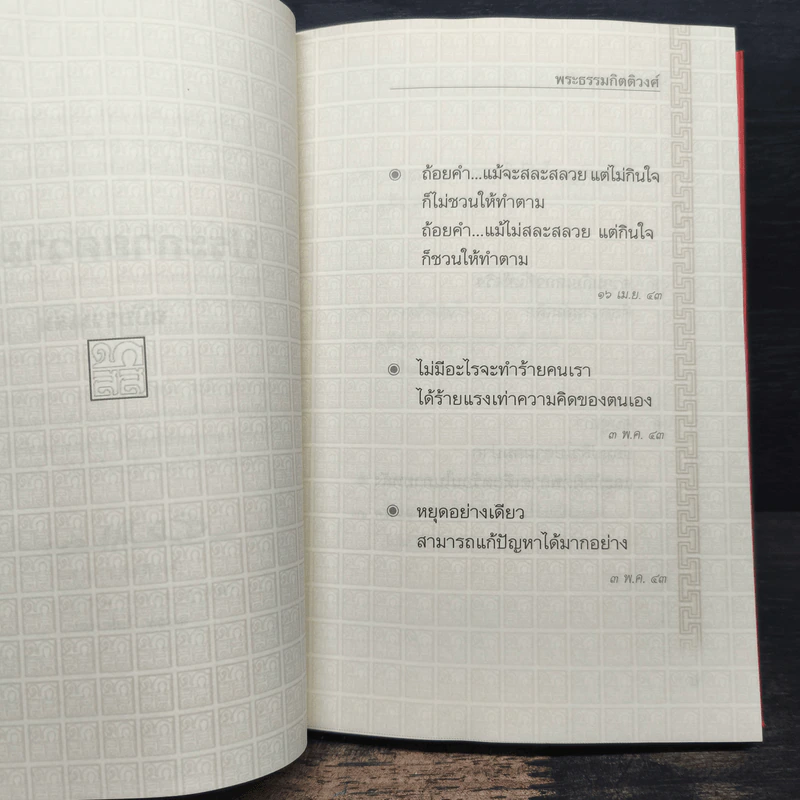 พระธรรมกิตติวงศ์
ถ้อยคำ...แม้จะสละสลวย แต่ไม่กินใจ
ก็ไม่ชวนให้ทำตาม
ถ้อยคำ...แม้ไม่สละสลวย แต่กินใจ
ก็ชวนให้ทำตาม
๑๖ เม.ย. ๔๓
ไม่มีอะไรจะทำร้ายคนเรา
ได้ร้ายแรงเท่าความคิดของตนเอง
๓ พ.ค. ๔๓
หยุดอย่างเดียว
สามารถแก้ปัญหาได้มากอย่าง
๓ พ.ค. ๔๓